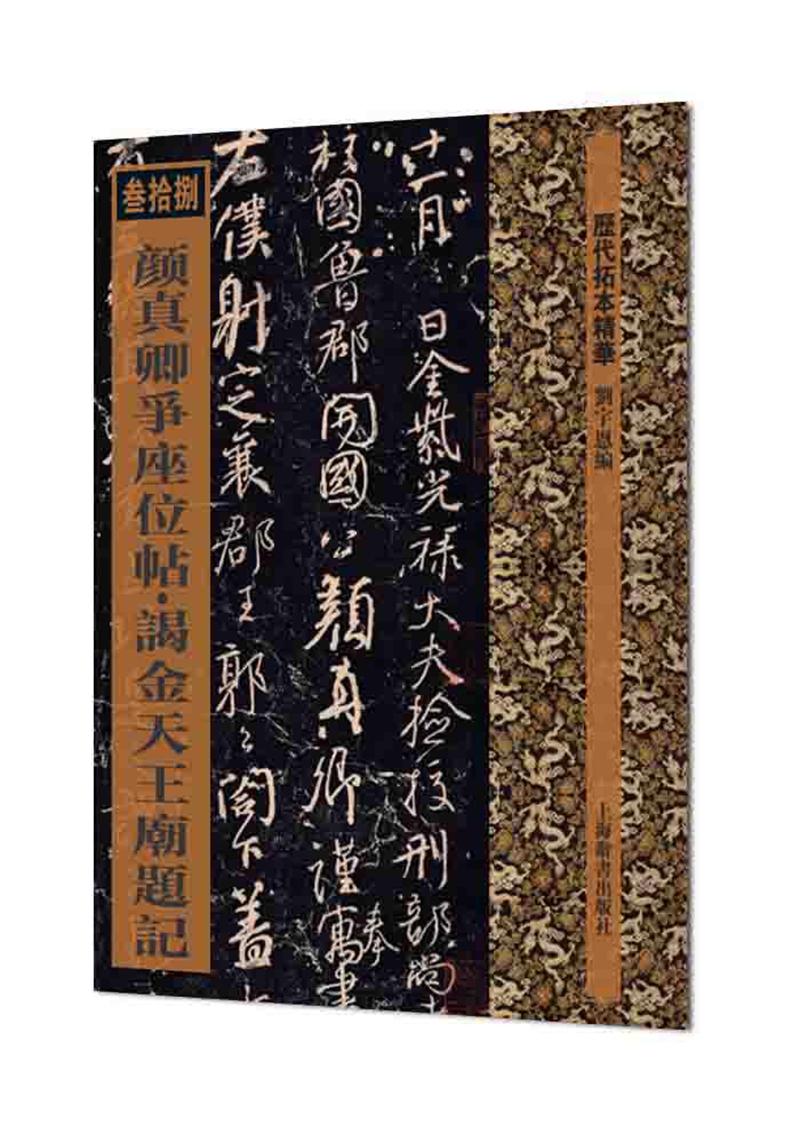 歷代拓本精華
劉宇恩編
上海辭書出版社
十一月 日金紫光祿大夫檢校刑部尚
柱國魯郡開國公顏真卿謹奉寓書
右僕射定襄郡王郭〻閤下蓋
叁拾捌
颜真卿爭座位帖·謁金天王廟題記